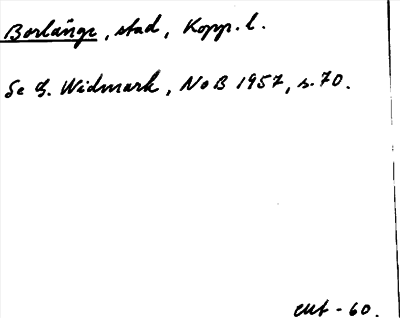 Borlänge, stad, Kopp. l.
Se G. Widmark, NoB 1957, s. 70.
-60.